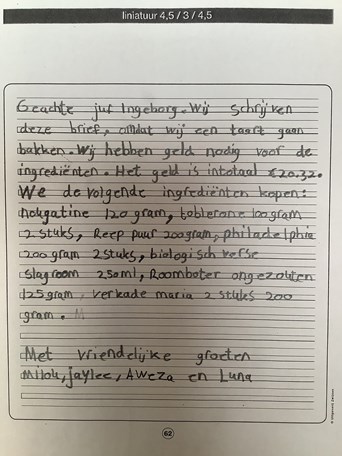 liniatuur 4,5 / 3 / 4,5
Geachte juf Ingeborg. Wij schrijven
deze brief, omdat wij een taart gaan
bakken. Wij hebben geld nodig voor de
ingrediënten. Het geld is intotaal €20.32.
We de volgende ingrediënten kopen:
nougatine 120 gram, toblerone 100gram
2 stuks, Reep puur 200gram, philadelphia
200 gram 2stuks, biologisch verse
slagroom 250ml, Roomboter ongezouten
125gram, verkade maria 2 stuks 200
gram.
Met vriendelijke groeten
Milou, jaylee, AWeza en Luna
62